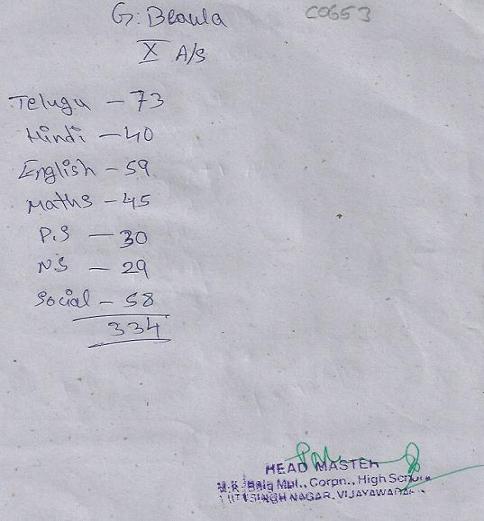 G. Beaula C0653
X A/S
Telugu - 73
Hindi - 40
English - 59
Maths - 45
P.S - 30
N.S - 29
Social - 58
334
HEAD MASTER
Mul., Corpn., High School
SINGH NAGAR, VIJAYAWADA